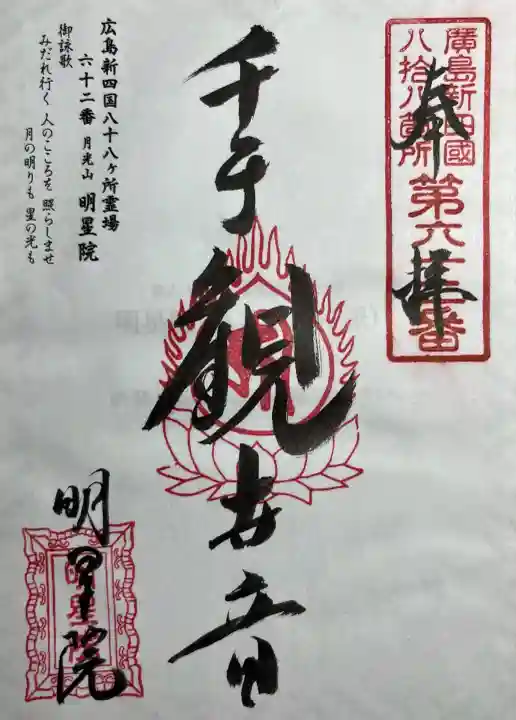 奉拝
廣島新四國
八拾八箇所
第六十二番
千手観世音
明星院
明星院
広島新四国八十八ヶ所霊場
六十二番 月光山 明星院
御詠歌
みだれ行く 人のこころを 照らしませ
月の明りも 星の光も